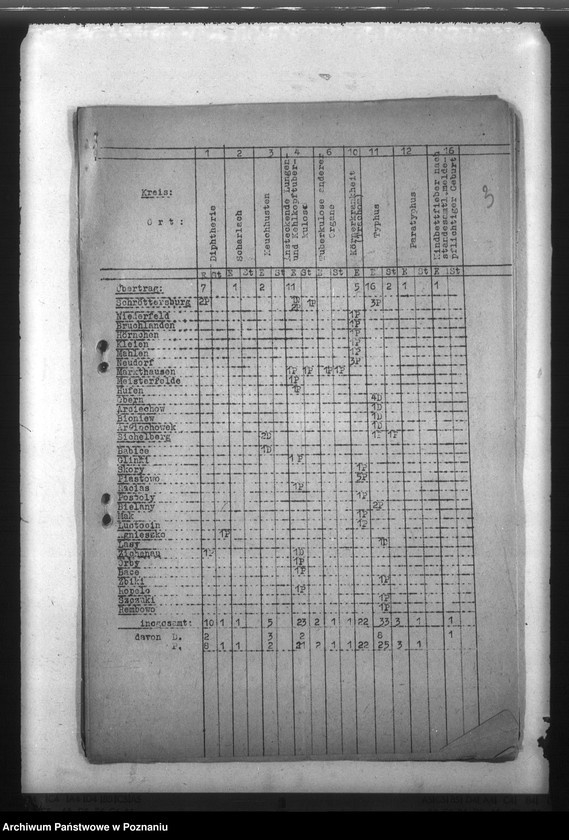 3
1 2 3 4 6 10 11 12 16
Kreis:
Ort:
Diphtherie
Scharlach
Keuchhusten
Ansteckende Lungen-
und Kehlkopftuber-
kulose
Tuberkulose anderer
Organe
Körnerkrankheit
Typhus
Paratyphus
Kindbettfieber nach
standesamtl.melde-
pflichtiger Geburt
E St E St E St E St E St E E St E St E St
Übertrag: 7 1 2 11 5 16 2 1 1
Schröttersburg 2P 1P 3P
Niederfeld 1P
Bruchlanden 1P
Hörnchen
Kleien 1P
Mahlen 1P
Neudorf 3P
Markthausen 1P 1P 1P 1P
Meisterfelde 1P
Hufen
Obern 4D
Arciechow 1D
Bioniew 1D
Arciechowek 1D
Sichelberg 2D 1P 1P
Babice 1D
Glinki 1P
Skory 1P
Piastowo 5P
Kacias 1P
Pospoly 1P
Bielany 2P
Mak 1P
Lutocin 1P
1P
Lasy 1P
1P 1D
Orby 1P
Bace 1P
Zbiki 1P
Ropolo 1P
Szczuki 1P
Rembowo 1P
insgesamt: 10 1 1 5 23 2 1 1 22 33 3 1 1
davon D. 2 3 2 8 1
P. 8 1 1 2 21 2 1 1 22 25 3 1
Archiwum Państwowe w Poznaniu